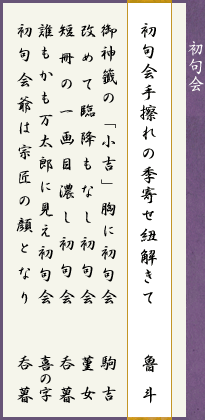 初句会
初句会手擦れの季寄せ紐解きて　魯斗
御神籤の「小吉」胸に初句会　駒吉
改めて臨降もなし初句会　菫女
短冊の一画目濃し初句会　呑暮
誰もかも万太郎に見え初句会　喜の字
初句会爺は宗匠の顔となり　呑暮